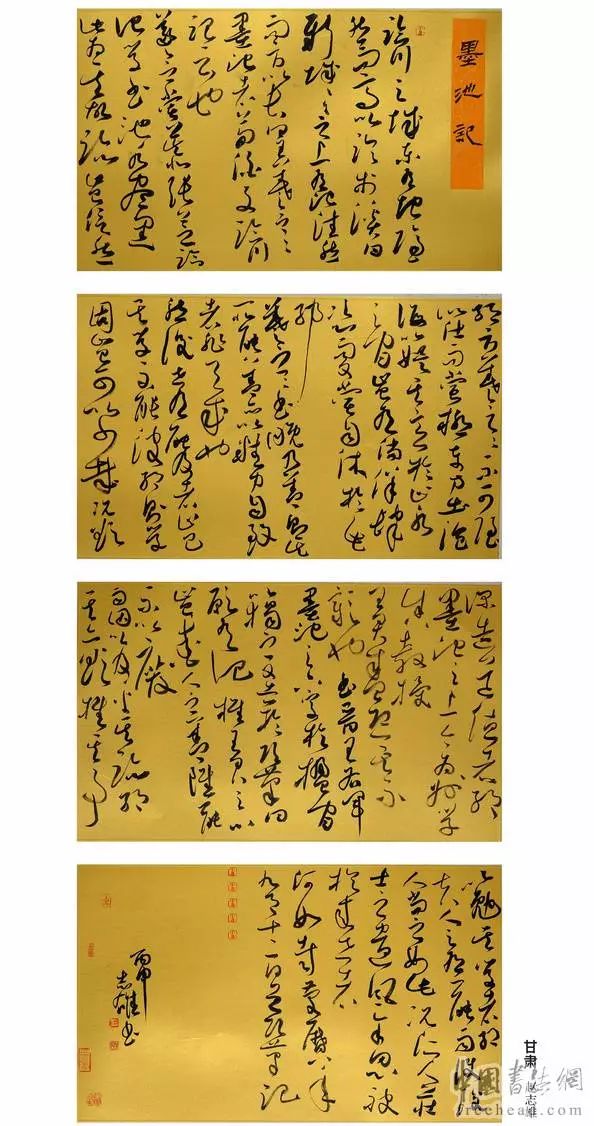 墨池記
臨川之城東有地隱
然而高以臨於溪曰
新城新城之上有池洼然
而方以長曰羲之之
墨池者荀伯子臨川
記云也
羲之嘗慕張芝臨
池學書池水盡黑
此為其故跡豈信然
邪方羲之之不可強
以仕而嘗極東方出滄
海以娛其意於山水
之間豈有徜徉肆
恣而又嘗自休於此
邪
羲之之書晚乃善則其
所能蓋亦以精力自致
者非天成也
然後世未有能及者豈
其學不如彼邪則學
固豈可以少哉況欲
深造道德者邪
墨池之上今為州學
舍教授
王君盛恐其不
章也書晉王右軍
墨池之六字於楹間以
揭之又告於鞏曰
願有記推王君之心
豈愛人之善雖一能
不以廢
而因以及乎其跡邪
其亦欲推其事
以勉其學者邪
夫人之有一能而使後
人尚之如此況仁人莊
士之遺風餘思被
於來世者
何如哉慶曆八年
九月十二日曾鞏記
丙申
志雄書
甘肃 赵志雄
中国書法網